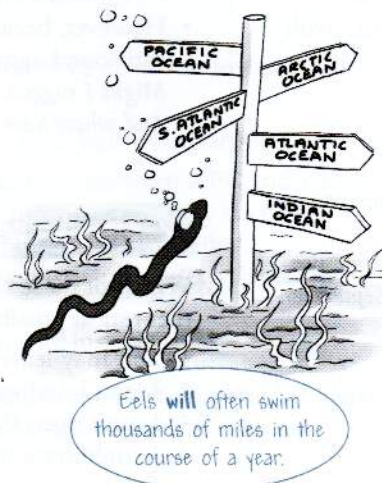 PACIFIC
OCEAN
ARCTIC
OCEAN
S. ATLANTIC
OCEAN
ATLANTIC
OCEAN
INDIAN
OCEAN
Eels will often swim
thousands of miles in the
course of a year.